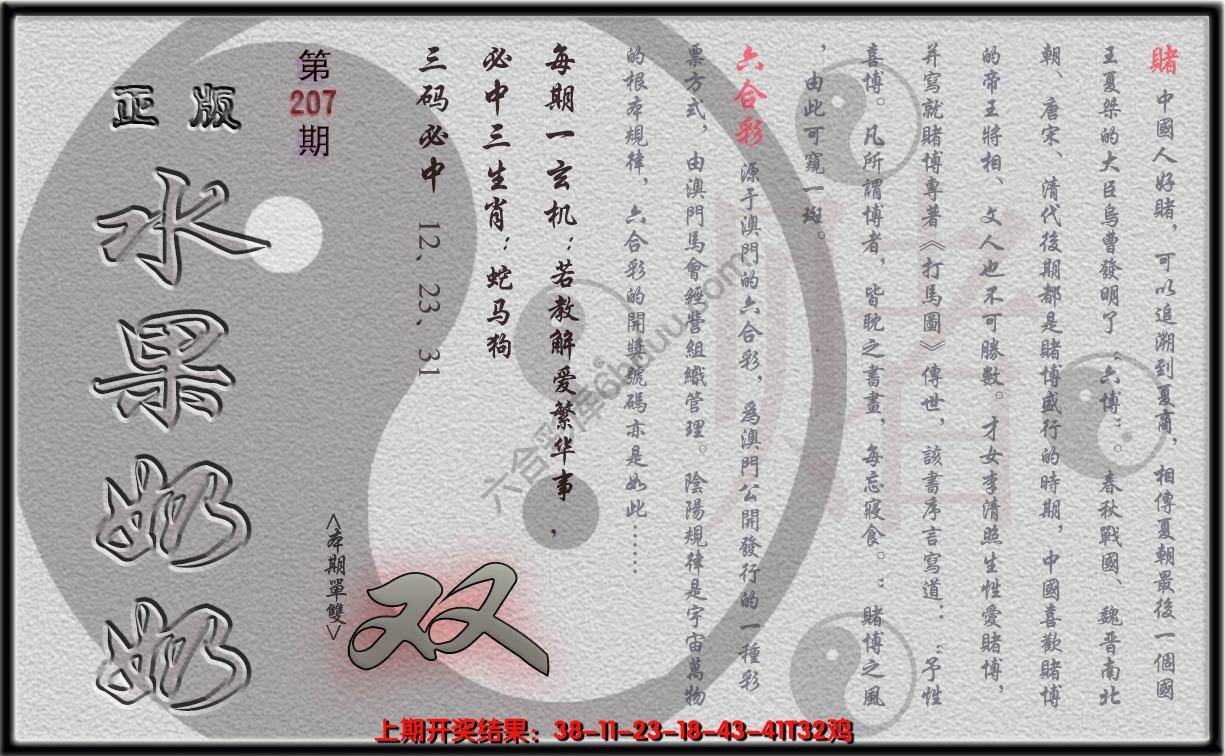 賭 中國人好賭，可以追溯到夏商，相傳夏朝最後一個國
王夏桀的大臣烏曹發明了“六博”。春秋戰國、魏晋南北
朝、唐宋、清代後期都是賭博盛行的時期，中國喜歡賭博
的帝王將相、文人也不可勝數。才女李清照生性愛賭博，
并寫就賭博專著《打馬圖》傳世，該書序言寫道：“予性
喜博。凡所謂博者，皆耽之書畫，每忘寢食。”賭博之風
，由此可窺一斑。
六合彩 源于澳門的六合彩，爲澳門公開發行的一種彩
票方式，由澳門馬會經營組織管理。陰陽規律是宇宙萬物
的根本規律，六合彩的開獎號碼亦是如此……
每期一玄机：若教解爱繁华事，
必中三生肖：蛇马狗
三码必中 12、23、31
第
207
期
正版
水果奶奶
<本期單雙>
双
六合彩库6huuu.com
上期开奖结果：38-11-23-18-43-41T32鸡